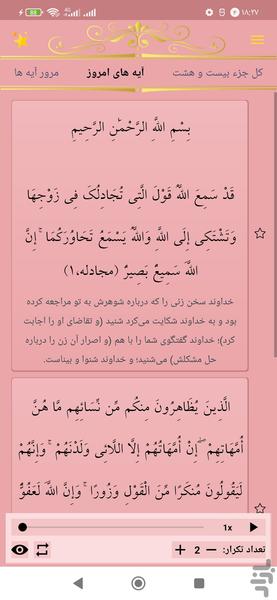 ۱۸:۲۷
کل جزء بیست و هشت
آیه های امروز
مرور آیه ها
بِسْمِ اللَّهِ الرَّحْمَٰنِ الرَّحِيمِ
قَدْ سَمِعَ اللَّهُ قَوْلَ الَّتِي تُجَادِلُكَ فِي زَوْجِهَا
وَتَشْتَكِي إِلَى اللَّهِ وَاللَّهُ يَسْمَعُ تَحَاوُرَكُمَا ۚ إِنَّ
اللَّهَ سَمِيعٌ بَصِيرٌ (مجادله،۱)
خداوند سخن زنی را که درباره شوهرش به تو مراجعه کرده
بود و به خداوند شکایت می‌کرد شنید (و تقاضای او را اجابت
کرد)؛ خداوند گفتگوی شما را با هم (و اصرار آن زن را درباره
حل مشکلش) می‌شنید؛ و خداوند شنوا و بیناست.
الَّذِينَ يُظَاهِرُونَ مِنكُم مِّن نِّسَائِهِم مَّا هُنَّ
أُمَّهَاتِهِمْ ۖ إِنْ أُمَّهَاتُهُمْ إِلَّا اللَّائِي وَلَدْنَهُمْ ۚ وَإِنَّهُمْ
لَيَقُولُونَ مُنكَرًا مِّنَ الْقَوْلِ وَزُورًا ۚ وَإِنَّ اللَّهَ لَعَفُوٌّ
1x
تعداد تکرار: − 2 +
بازار